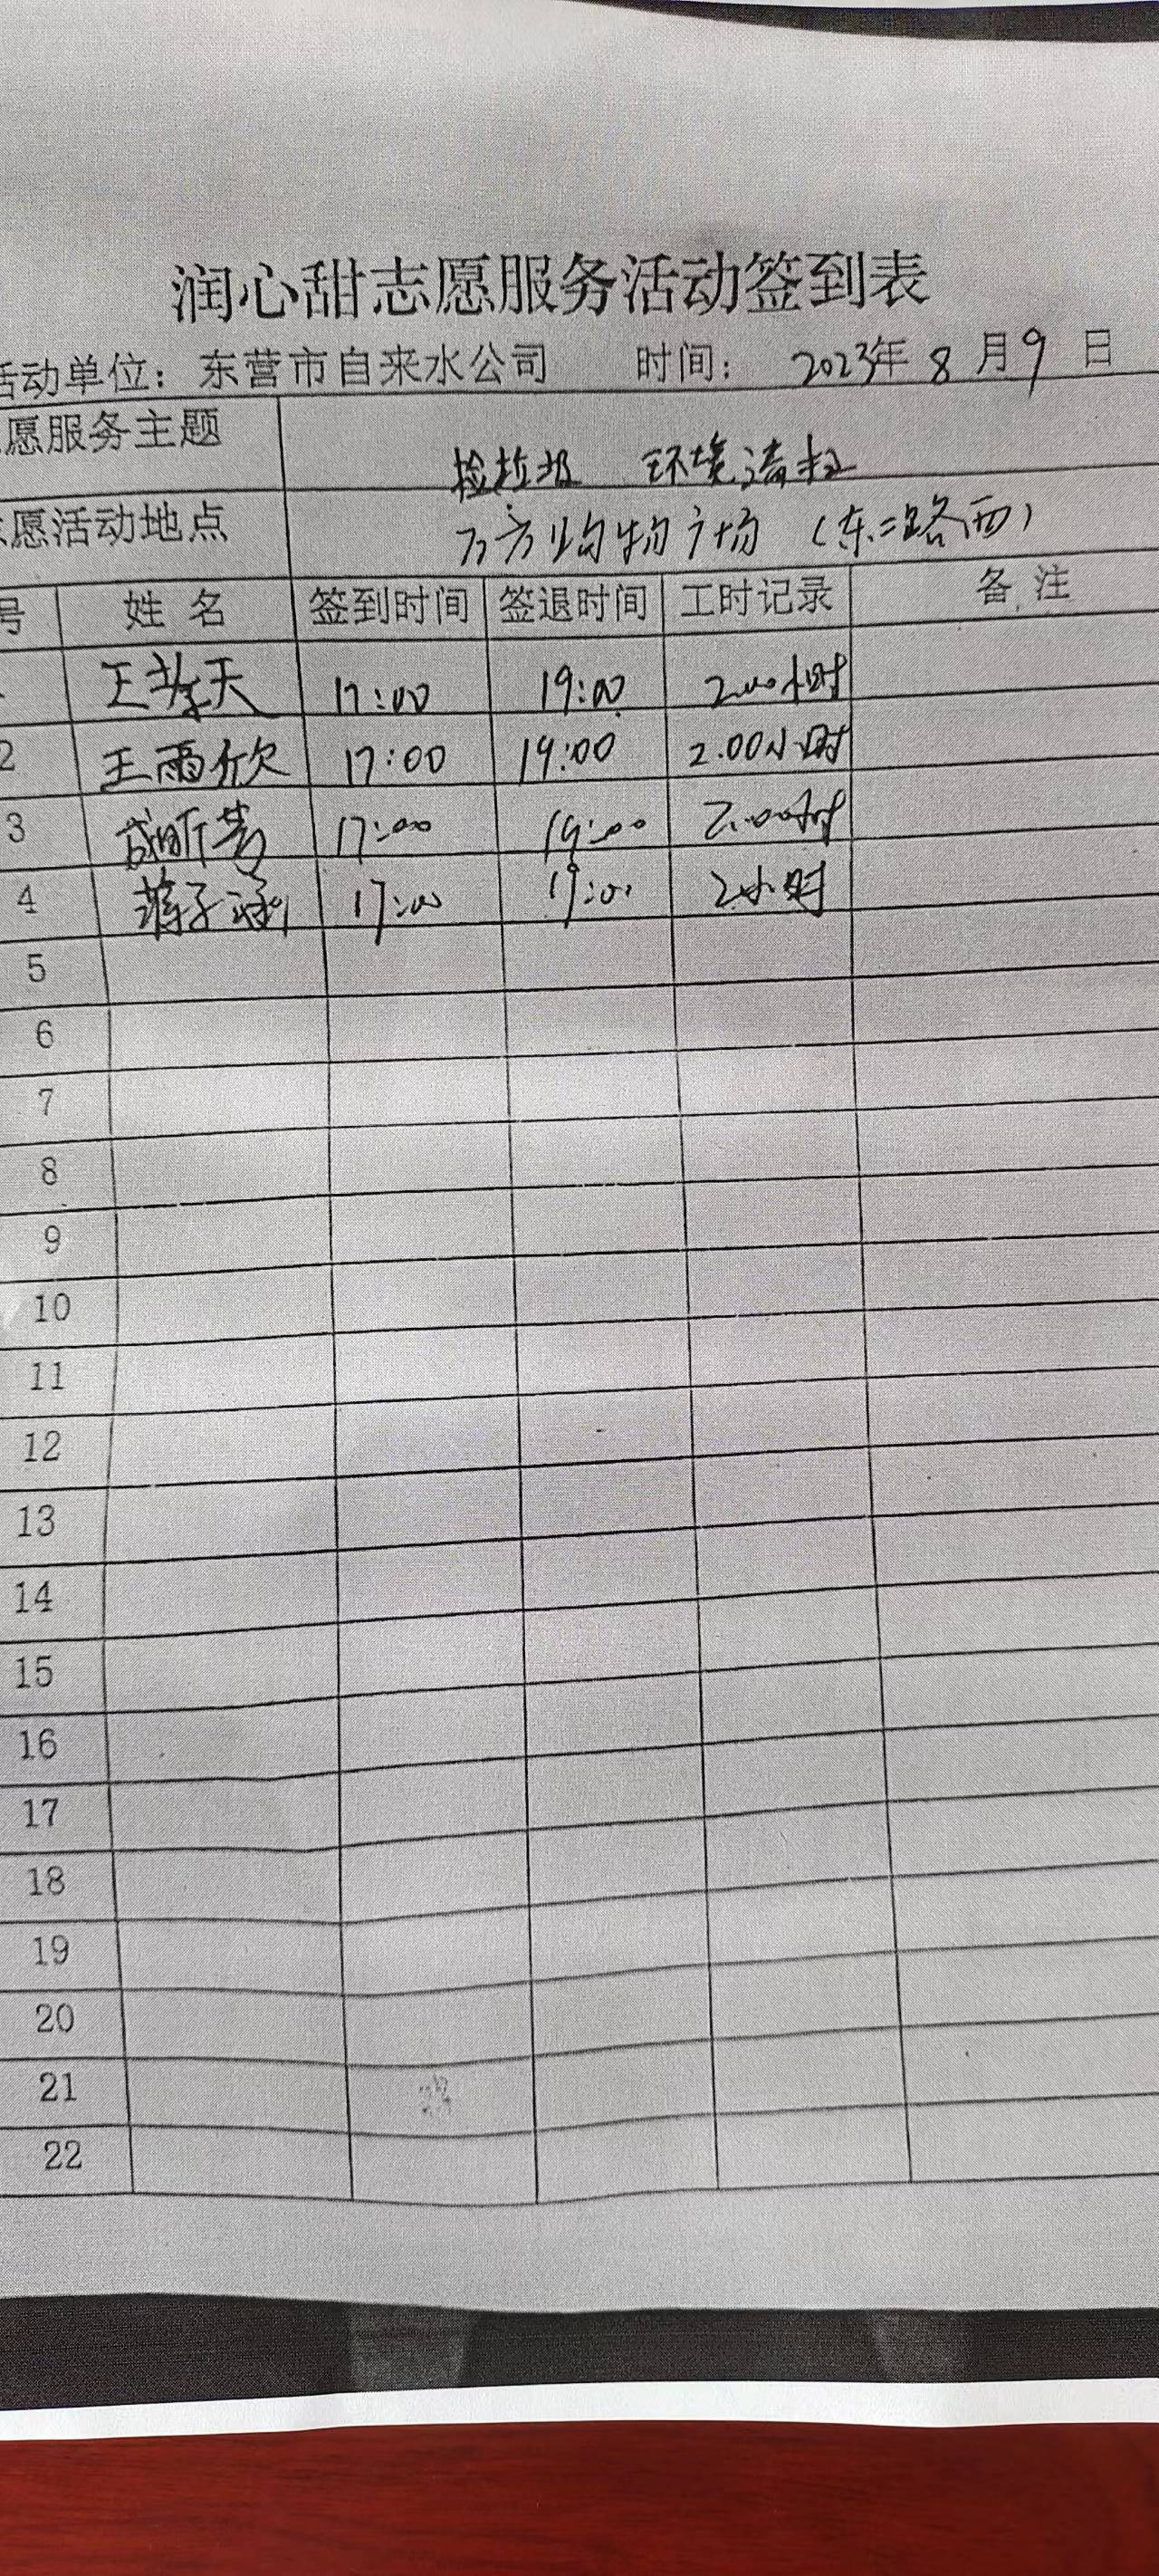 润心甜志愿服务活动签到表
活动单位：东营市自来水公司 时间： 2023年 8 月 9 日
愿服务主题 捡垃圾 环境清扫
愿活动地点 万方购物广场（东二路西）
号 姓 名 签到时间 签退时间 工时记录 备 注
王 天 17:00 19:00 2.00小时
2 王雨欣 17:00 19:00 2.00小时
3 17:00 19:00 2.00小时
4 蒋子涵 17:00 19:00 2小时
5
6
7
8
9
10
11
12
13
14
15
16
17
18
19
20
21
22